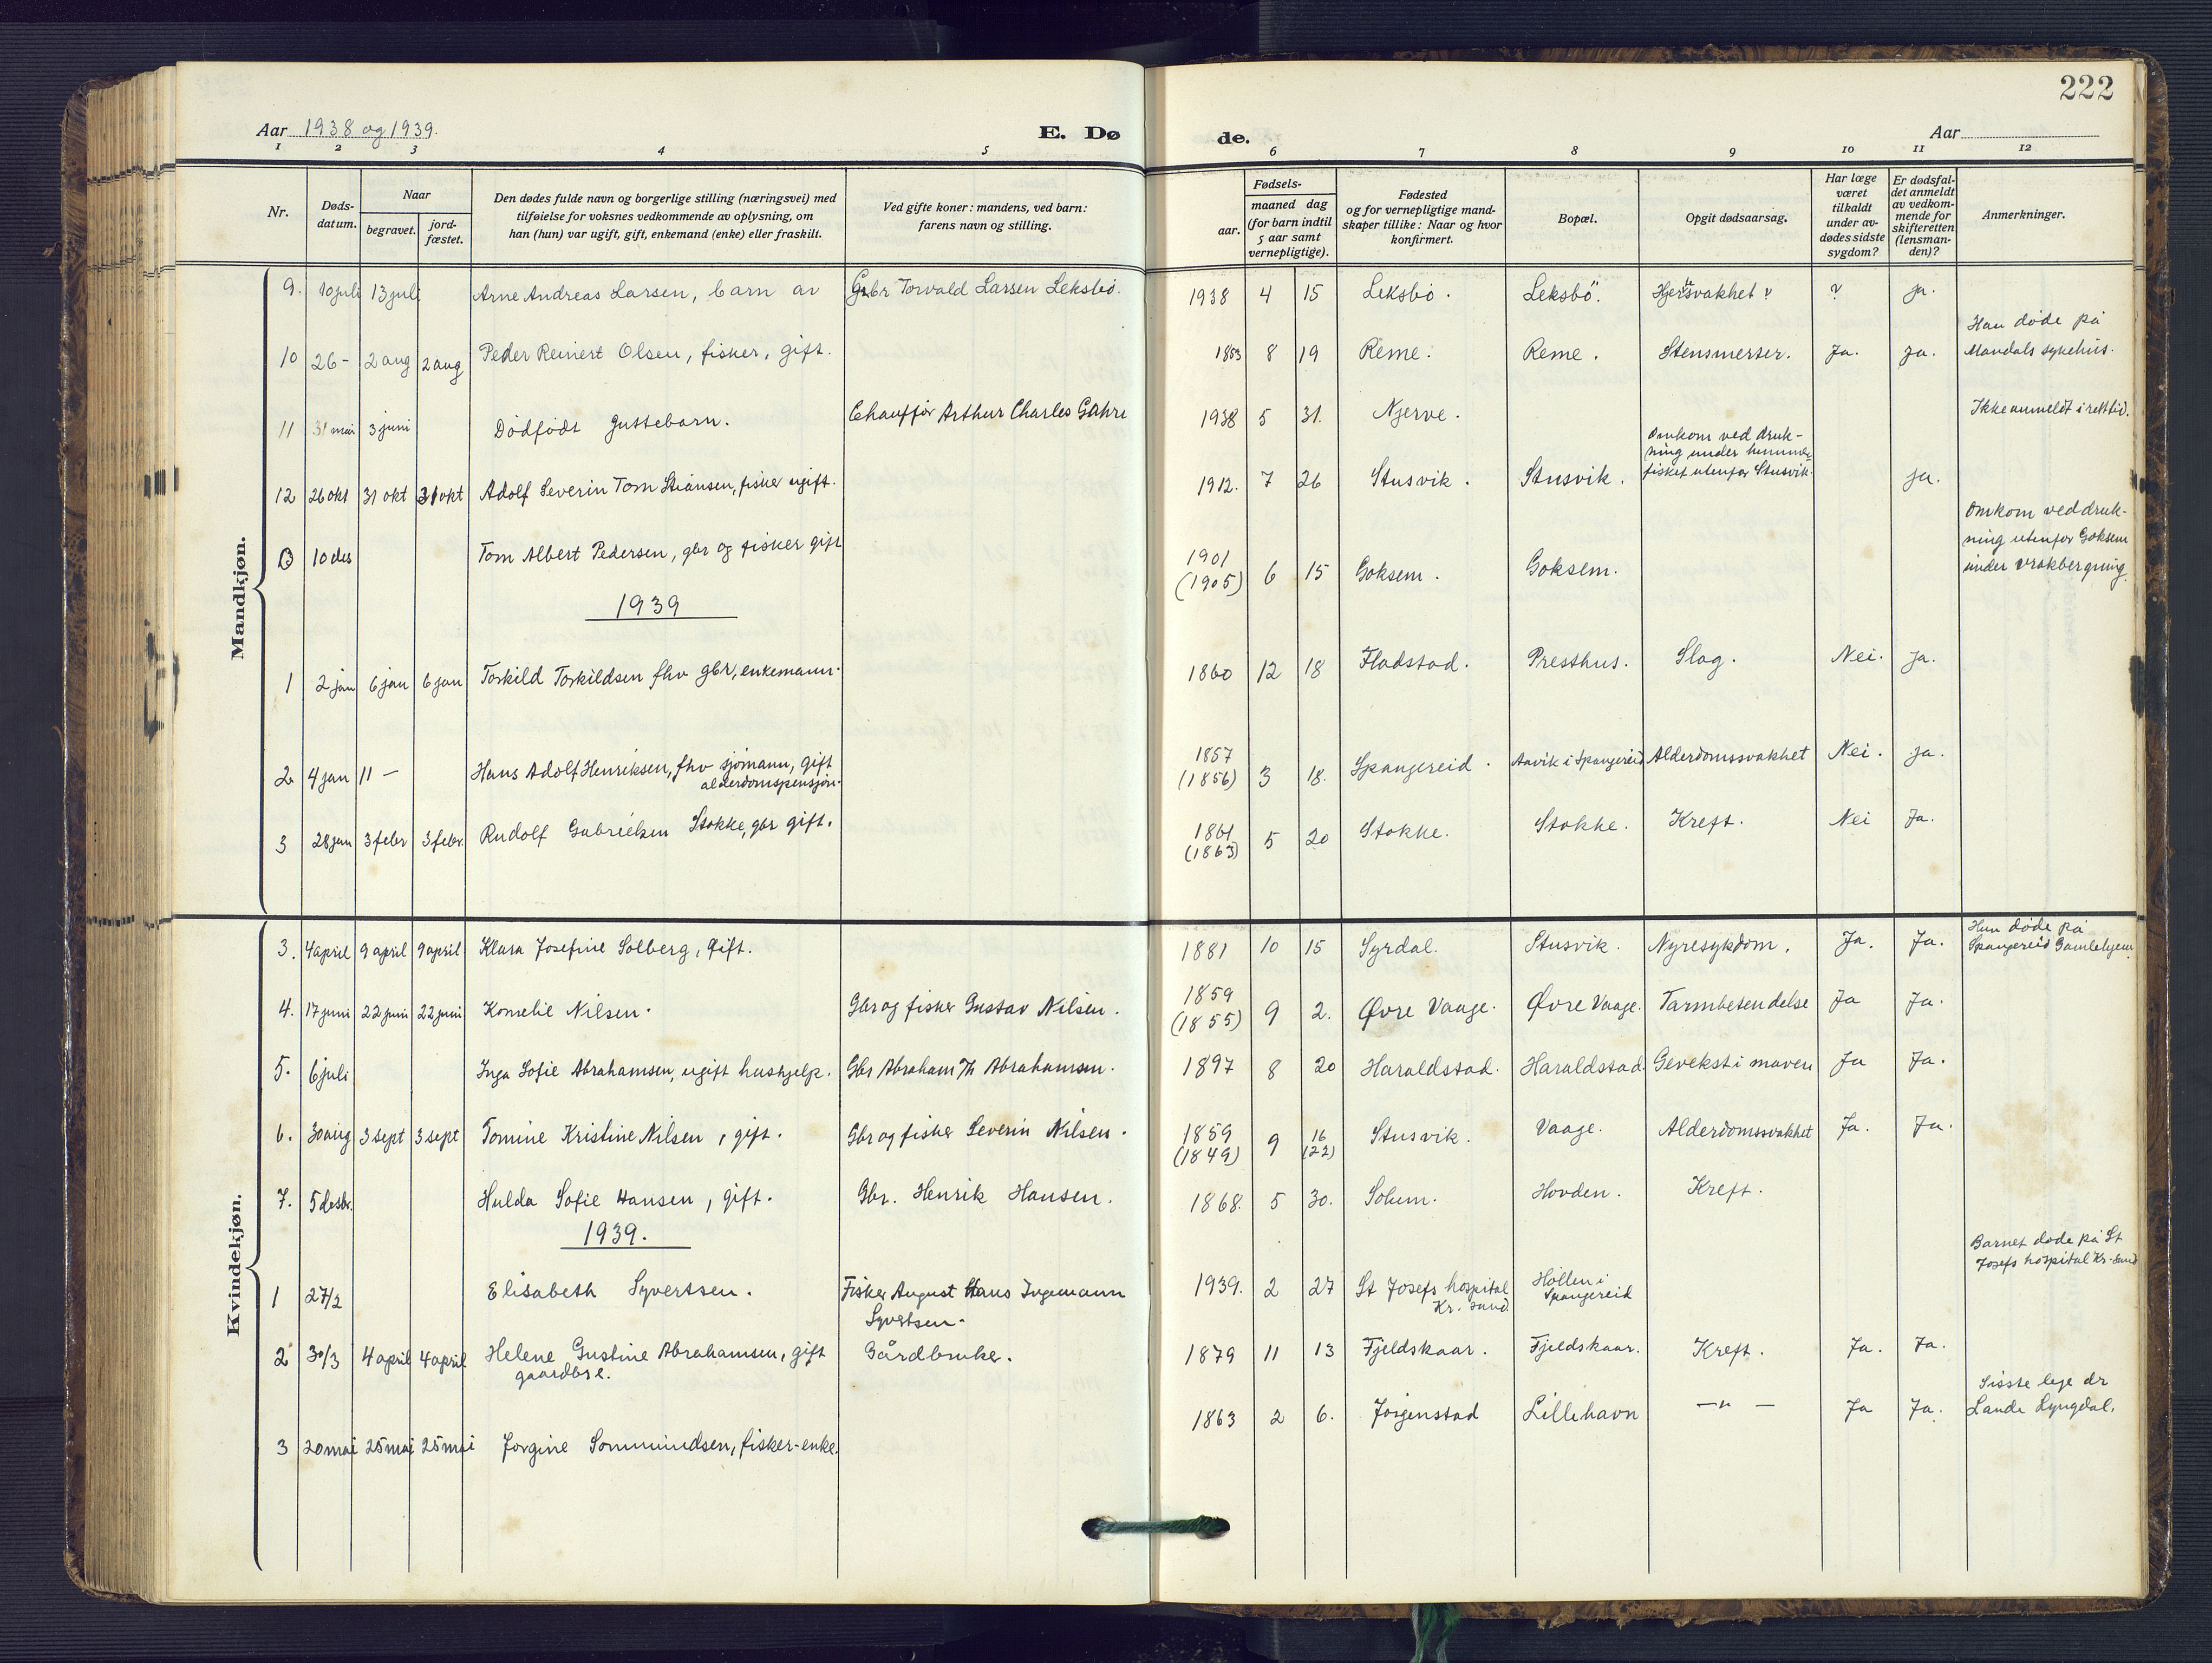 222
Aar 1938 og 1939.
E. Dø
de.
Aar
1 2 3 4 5 6 7 8 9 10 11 12
Nr.
Døds-
datum.
Naar
begravet.
jord-
fæstet.
Den dødes fulde navn og borgerlige stilling (næringsvei) med
tilføielse for voksnes vedkommende av oplysning, om
han (hun) var ugift, gift, enkemand (enke) eller fraskilt.
Ved gifte koner: mandens, ved barn:
farens navn og stilling.
Fødsels-
aar.
maaned dag
(for barn indtil
5 aar samt
vernepligtige).
Fødested
og for vernepligtige mand-
skaper tillike: Naar og hvor
konfirmert.
Bopæl.
Opgit dødsaarsag.
Har læge
været
tilkaldt
under av-
dødes sidste
sygdom?
Er dødsfal-
det anmeldt
av vedkom-
mende for
skifteretten
(lensman-
den)?
Anmerkninger.
Mandkjøn.
9. 10 juli 13 juli Arne Andreas Larsen, barn av Gbr Torvald Larsen Leksbö. 1938 4 15 Leksbö. Leksbö. Hjertesvakhet ? ? ja.
10 26- 2 aug 2 aug Peder Reinert Olsen, fisker, gift. 1853 8 19 Reme. Reme. Stensmerter. Ja. ja. Han døde på
Mandals sykehus.
11 31 mai 3 juni Dødfødt guttebarn. Chauffør Arthur Charles Gahre 1938 5 31. Njerve. Ikke anmeldt i rett tid.
12 26 okt 31 okt 31 okt Adolf Severin Tom Stiansen, fisker ugift. 1912. 7 26 Stusvik. Stusvik. Omkom ved druk-
ning under hummer-
fisket utenfor Stusvik. ja.
13 10 des Tom Albert Pedersen, gbr og fisker gift 1901
(1905) 6 15 Goksem. Goksem. Omkom ved druk-
ning utenfor Goksem
under vrakbergning.
1939
1 2 jan 6 jan 6 jan Torkild Torkildsen fhv gbr, enkemann. 1860 12 18 Fladstad. Presthus. Slag. Nei. ja.
2 4 jan 11 - Hans Adolf Henriksen, fhv sjømann, gift
alderdomspensjon. 1857
(1856) 3 18. Spangereid. Aavik i Spangereid Alderdomssvakhet Nei. ja.
3 28 jan 3 febr 3 febr. Rudolf Gabrielsen Stokke, gbr gift. 1861
(1863) 5 20 Stokke. Stokke. Kreft. Nei Ja.
Kvindekjøn.
3. 4 april 9 april 9 april Klara Josefine Solberg, gift. 1881 10 15 Syrdal. Stusvik. Nyresykdom. Ja. Ja. Hun døde på
Spangereid Gamlehjem.
4. 17 juni 22 juni 22 juni Kornelie Nilsen. Gbr og fisker Gustav Nilsen. 1859
(1855) 9 2. Øvre Vaage. Øvre Vaage. Tarmbetendelse Ja Ja.
5. 6 juli Inga Sofie Abrahamsen, ugift hushjelp. Gbr Abraham Th Abrahamsen. 1897 8 20 Haraldstad. Haraldstad. Gevekst i maven Ja Ja.
6. 30 aug 3 sept 3 sept Tomine Kristine Nilsen, gift. Gbr og fisker Severin Nilsen. 1859
(1849) 9 16
(22) Stusvik. Vaage. Alderdomssvakhet Ja. Ja.
7. 5 desbr. Hulda Sofie Hansen, gift. Gbr. Henrik Hansen. 1868. 5 30. Solum. Hovden. Kreft.
1939.
1 27/2 Elisabeth Syvertsen. Fisker August Hans Ingemann
Syvertsen. 1939. 2 27 St Josefs hospital
Kr. sand. Høllen i
Spangereid Barnet døde på St
Josefs hospital Kr. sand
2 30/3 4 april 4 april Helene Gustine Abrahamsen, gift
gaardbr e. Gårdbruke. 1879 11 13 Fjeldskaar. Fjeldskaar. Kreft. Ja. Ja.
3 20 mai 25 mai 25 mai Jorgine Sommundsen, fisker-enke. 1863 2 6. Jörgenstad Lillehavn -"- Ja Ja. Sisste lege dr
Lande Lyngdal.